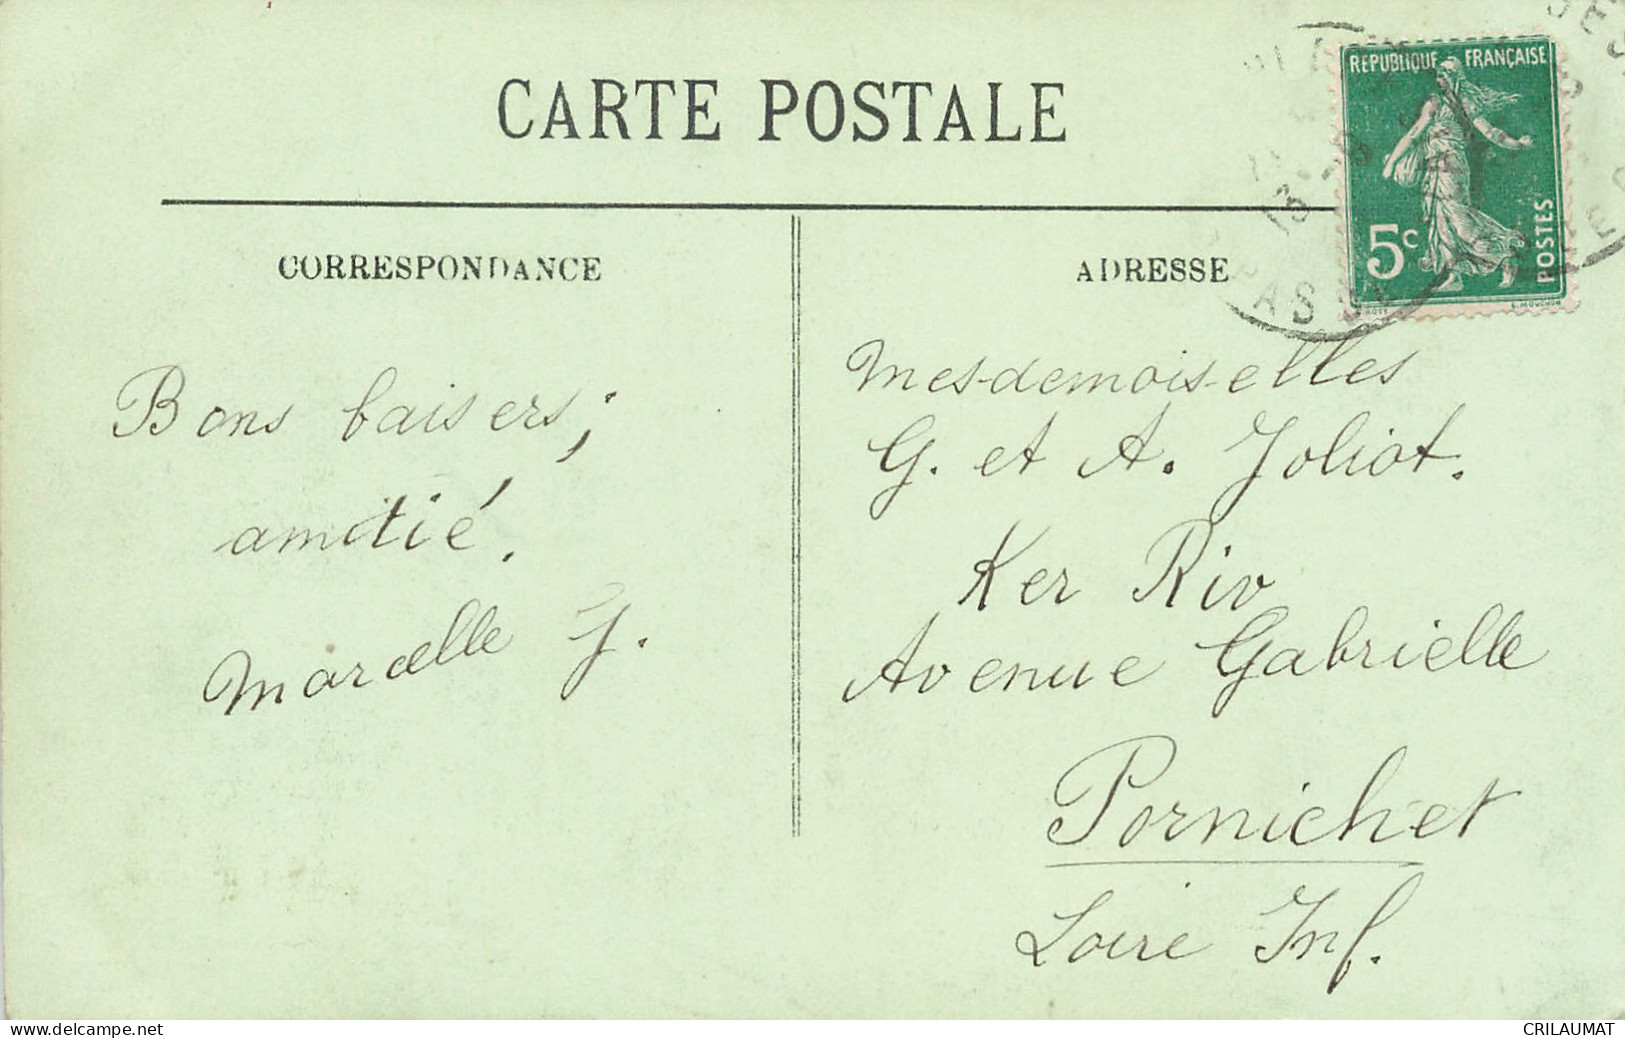 CARTE POSTALE
REPUBLIQUE FRANÇAISE
5c
POSTES
E. MOUCHON
CORRESPONDANCE
ADRESSE
Bons baisers;
amitié.
Marcelle J.
Mesdemoiselles
G. et A. Joliot.
Ker Riv
Avenue Gabrielle
Pornichet
Loire Inf.
www.delcampe.net
CRILAUMAT